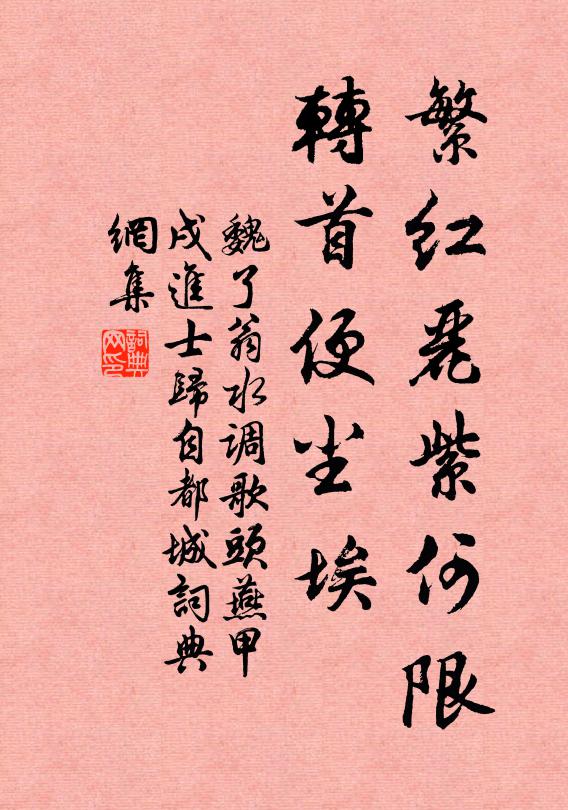 繁红麗紫何限
轉首便尘埃
魏了翁水调歌頭燕甲
戌進士歸自都城詞典
網集
詞典网印